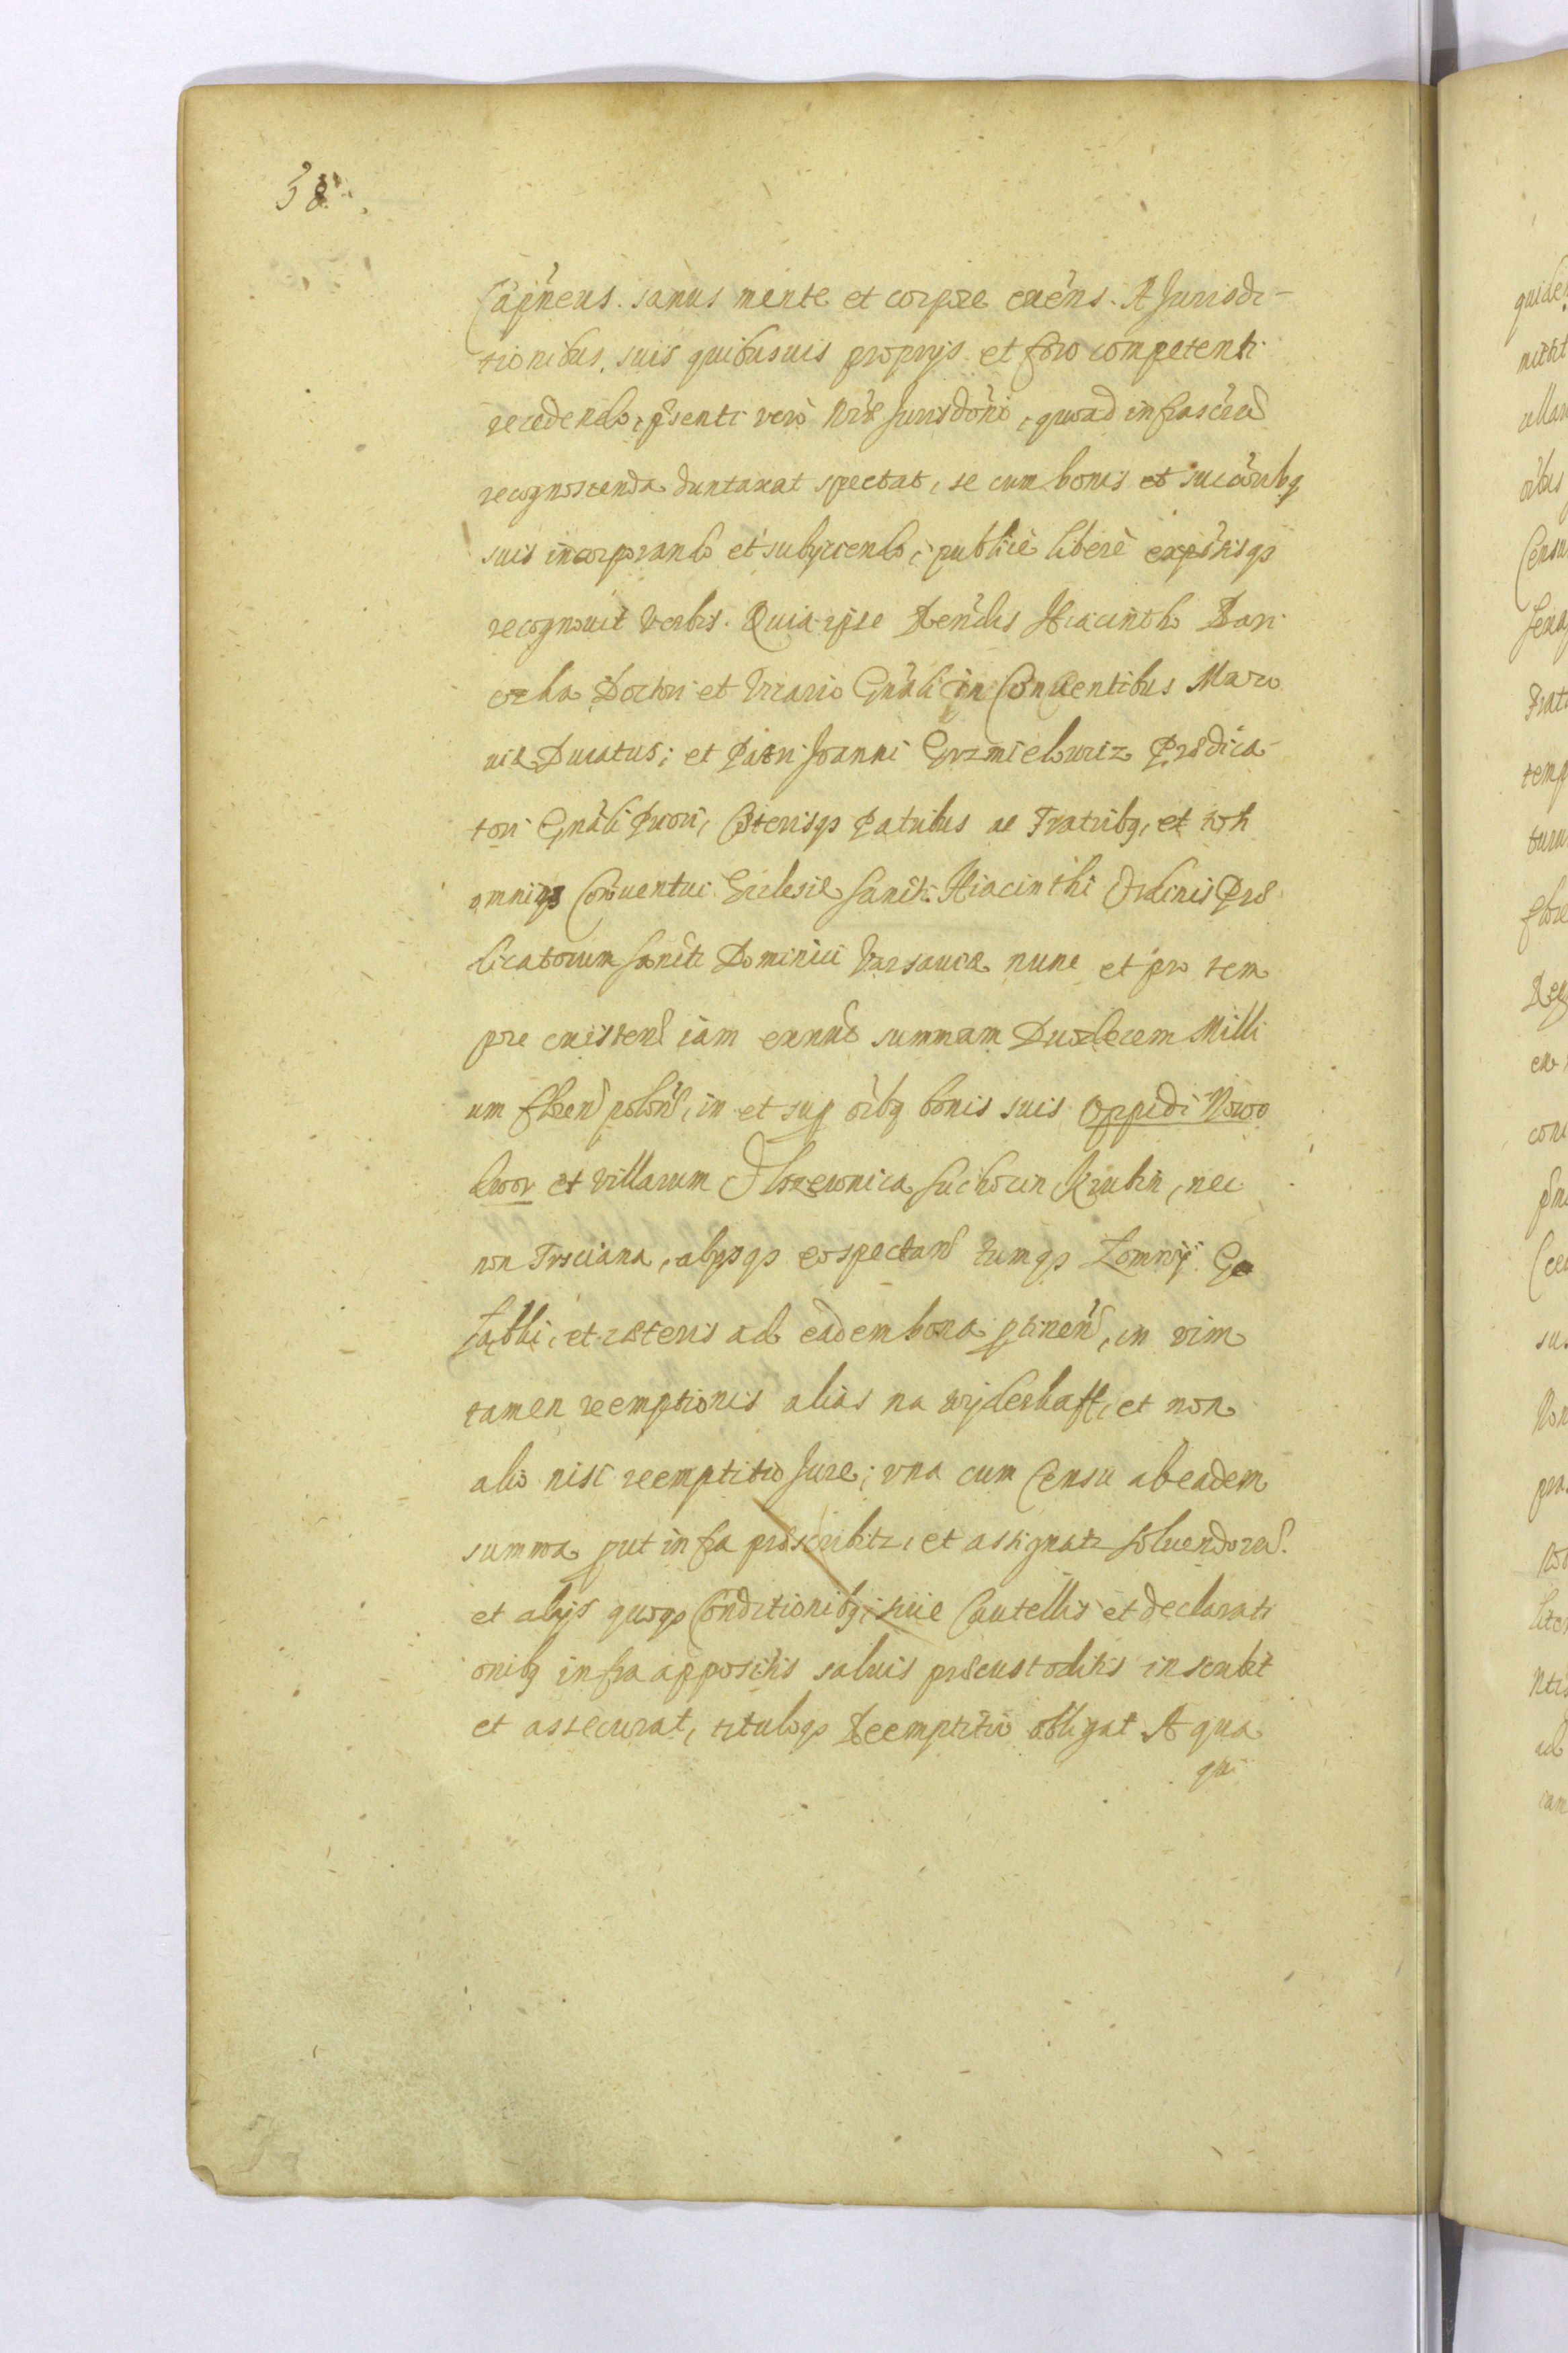 38.
Capneus. sanus mente et corpore exens. A Jurisdi-
tionibus. suis quibusuis proprijs et foro competenti
recedendo, pñsenti verò Nræ Jurisdõni, quoad infrascrta
recognoscenda duntaxat spectat, se cum bonis et succõribq
suis incorporando et subijciendo, publicè liberè expssisqз
recognouit verbis. Quia ipse Rendis Hiacintho Bari
Doctori et Vicario Gnali in Conuentibus Mazo
uiæ Ducatus; et Patri Joanni Grzmielowicz Prædica-
tori Gnali Priori, Cæterisqз Patribus ac Fratribq, et toti
omniqз Conuentui Ecclesiæ Sancti Hiacinthi Ordinis Præ
dicatorum Sancti Dominici Varsauiæ nunc et pro tem
pore existen iam summam Duodecem Milli
um floren polon, in et sup oibq bonis suis Oppidi Nowo
dwor et villarum Olszewnica, Suchocin, Krubin, nec
non Trsciana, alijsqз eo spectan tumqз Łomny Ga
et cæteris ad eadem bona ptinen, in vim
tamen reemptionis alias na wyderkaff, et non
alio nisi reemptitio Jure; vna cum Censu ab eadem
summa put infra præscribitr, et assignatr soluendo
et alijs quoqз Conditionibq, siue Cautellis et declarati
onibq infra appositis saluis præcustoditis inscribit
et assecurat, tituloqз Reemptitio obligat A qua
qui